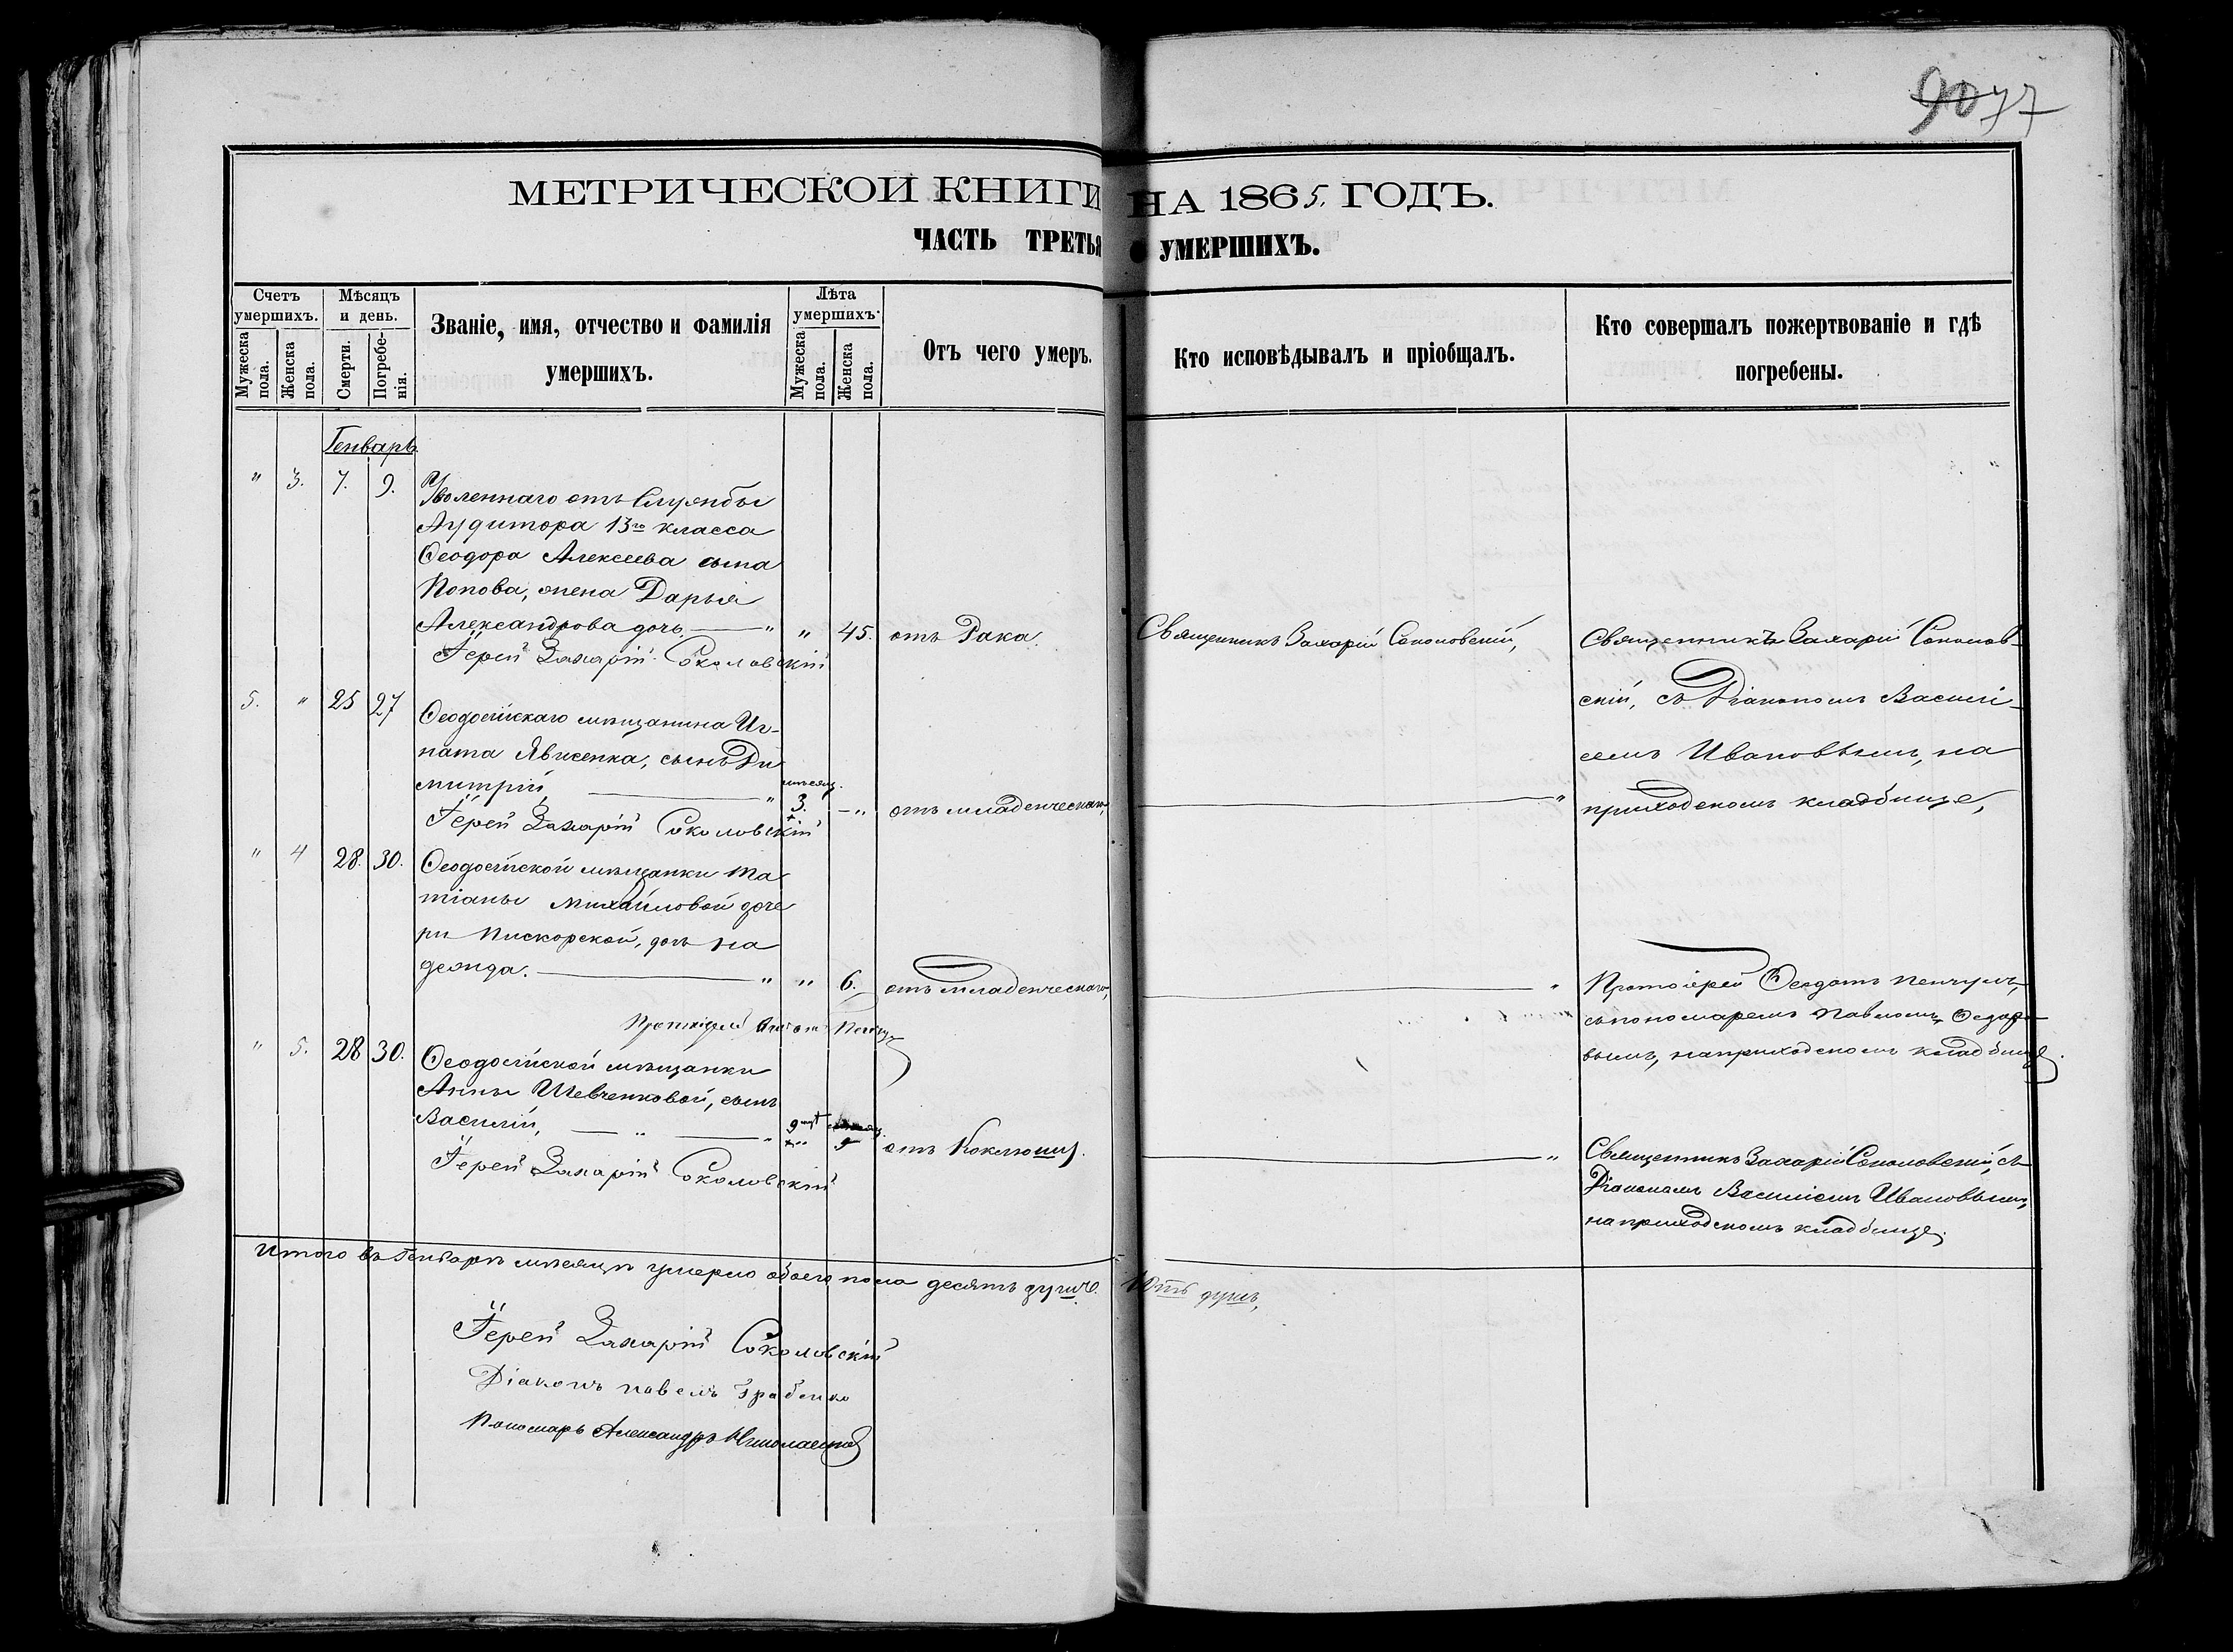 9077
МЕТРИЧЕСКОЙ КНИГИ НА 1865. ГОДЪ.
ЧАСТЬ ТРЕТЬЯ О УМЕРШИХЪ.
Счетъ умершихъ.
Мужеска пола.
Женска пола.
Мѣсяцъ и день.
Смерти.
Погребенія.
Званіе, имя, отчество и фамилія
умершихъ.
Лѣта умершихъ.
Мужеска пола.
Женска пола.
Отъ чего умеръ.
Кто исповѣдывалъ и пріобщалъ.
Кто совершалъ пожертвованіе и гдѣ
погребены.
Генварь
" 3. 7. 9.
Уволеннаго отъ Службы
Аудитора 13го класса
Ѳеодора Алексеева сына
Попова, жена Дарья
Александрова дочь. — " " 45. отъ Рака.
Священникъ Захарій Соколовскій,
Священникъ Захарій Соколов-
скій, съ Діакономъ Василі-
емъ Ивановымъ, на
приходскомъ кладбище,
Іерей Захарій Соколовскій
5. " 25 27
Ѳеодосійскаго мѣщанина Иг-
ната Явисенка, сынъ Ди
митрій, — " мѣсяц. 3. — " отъ младенческаго, — "
Іерей Захарій Соколовскій
" 4 28. 30.
Ѳеодосійской мѣщанки Та
тіаны Михайловой доче
ри Пискорской, дочь На
дежда. — " " 6. отъ младенческаго, — "
Протоіерей Ѳеодотъ
съ пономаремъ Павломъ
вымъ, на приходскомъ кладбище.
Протоіерей
" 5. 28 30.
Ѳеодосійской мѣщанки
Анны Шевченковой, сынъ
Василій, — " — " 9 отъ Коклюша. — "
Священникъ Захарій Соколовскій, съ
Діакономъ Василіемъ Ивановымъ,
на приходскомъ кладбище.
Іерей Захарій Соколовскій
Итого въ Генваре мѣсяцѣ умерло обоего пола десять душъ. 10ть душъ,
Іерей Захарій Соколовскій
Діаконъ Павелъ Грабенко
Пономарь Александръ